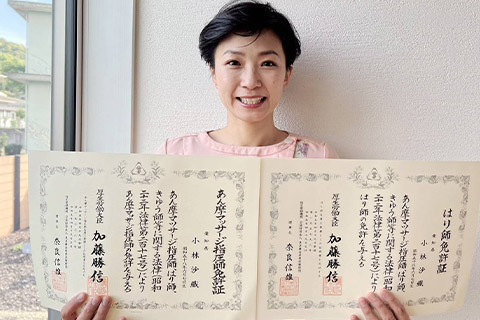 はり師免許証
愛知県
小林沙織
あん摩マツサージ指圧師、はり師、
きゆう師等に関する法律(昭和
二十二年法律第二百十七号)により
はり師の免許を与える
厚生労働大臣 加藤勝信
奈良信雄
あん摩マツサージ指圧師免許証
愛知県
小林沙織
あん摩マツサージ指圧師、はり師、
きゆう師等に関する法律(昭和
二十二年法律第二百十七号)により
あん摩マツサージ指圧師の免許を与える
厚生労働大臣 加藤勝信
奈良信雄